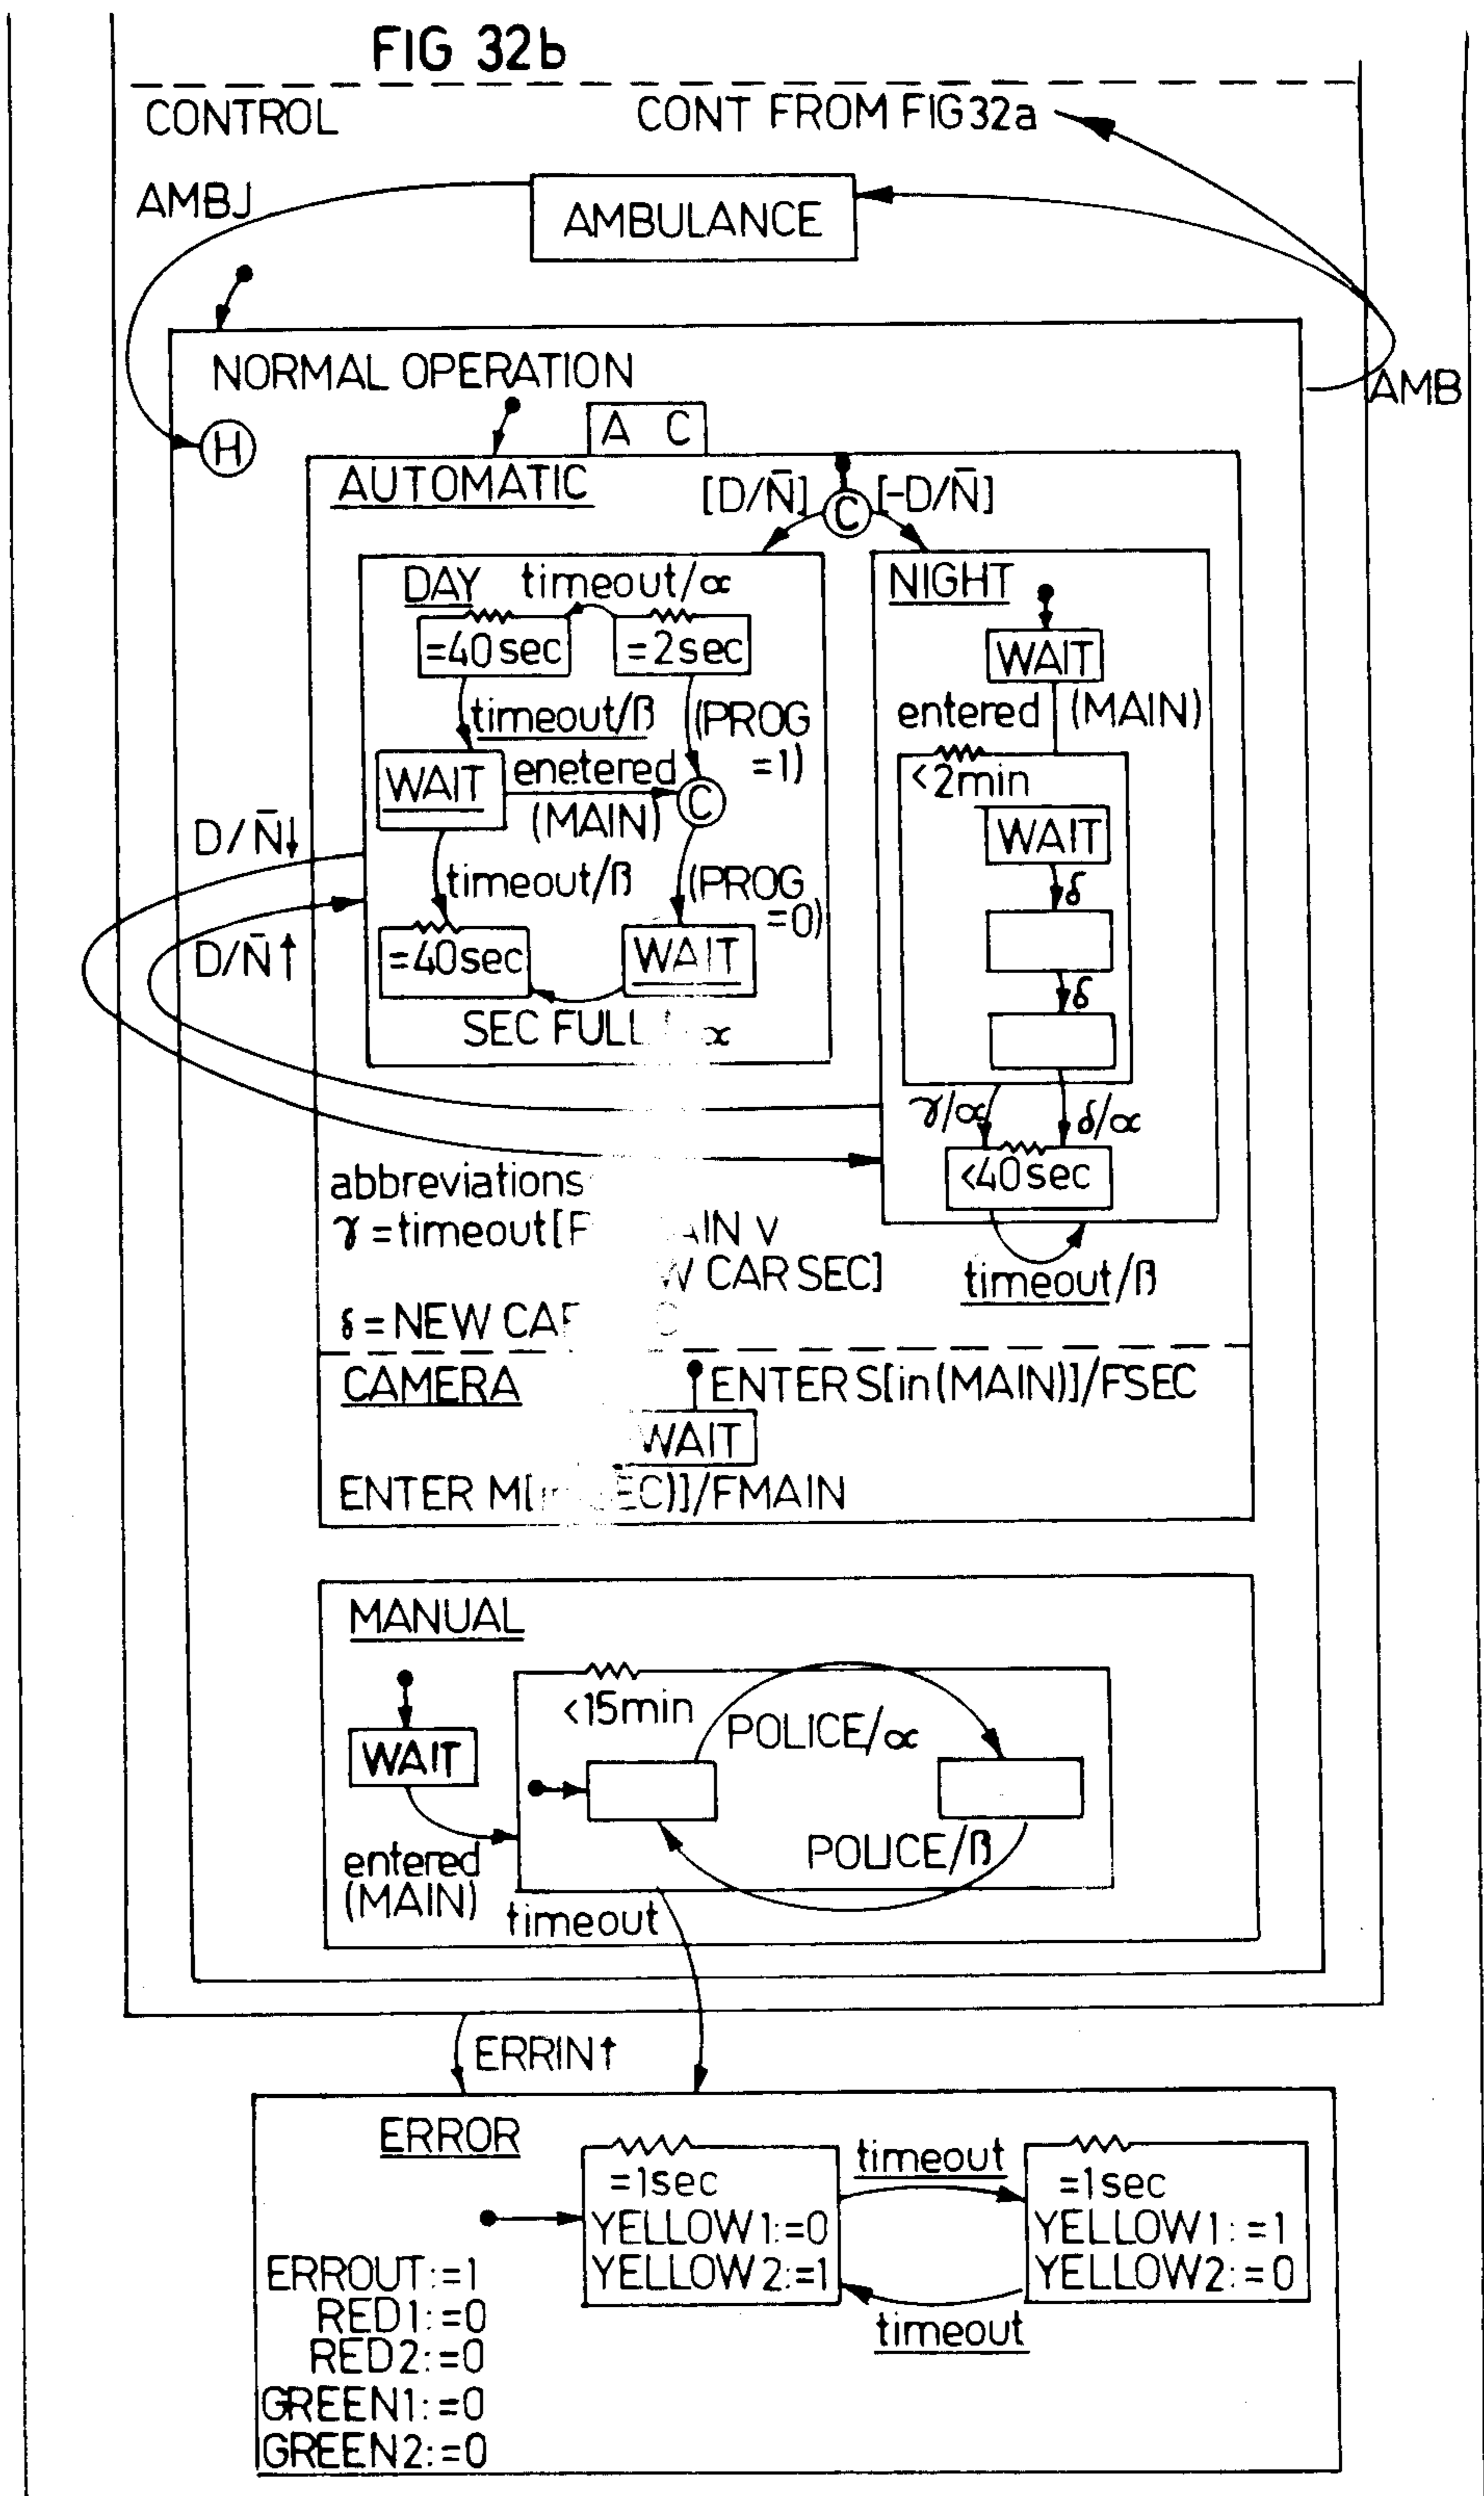 FIG 32b
CONTROL
CONT FROM FIG32a
AMBJ
AMBULANCE
NORMAL OPERATION
AMB
H
A C
AUTOMATIC
[D/N̄]
C
[-D/N̄]
DAY timeout/α
=40sec
=2sec
timeout/β
(PROG
=1)
WAIT
enetered
(MAIN)
C
timeout/β
(PROG
=0)
=40sec
WAIT
SEC FULL α
NIGHT
WAIT
entered (MAIN)
<2min
WAIT
δ
δ
γ/α
δ/α
<40sec
timeout/β
D/N̄↓
D/N̄↑
abbreviations
γ=timeout[F AIN v
W CARSEC]
δ=NEW CA
CAMERA
ENTER S[in(MAIN)]/FSEC
WAIT
ENTER M[in SEC)]/FMAIN
MANUAL
WAIT
entered
(MAIN)
<15min
POLICE/α
POLICE/β
timeout
ERRIN↑
ERROR
=1sec
YELLOW1:=0
YELLOW2:=1
timeout
=1sec
YELLOW1:=1
YELLOW2:=0
timeout
ERROUT:=1
RED1:=0
RED2:=0
GREEN1:=0
GREEN2:=0